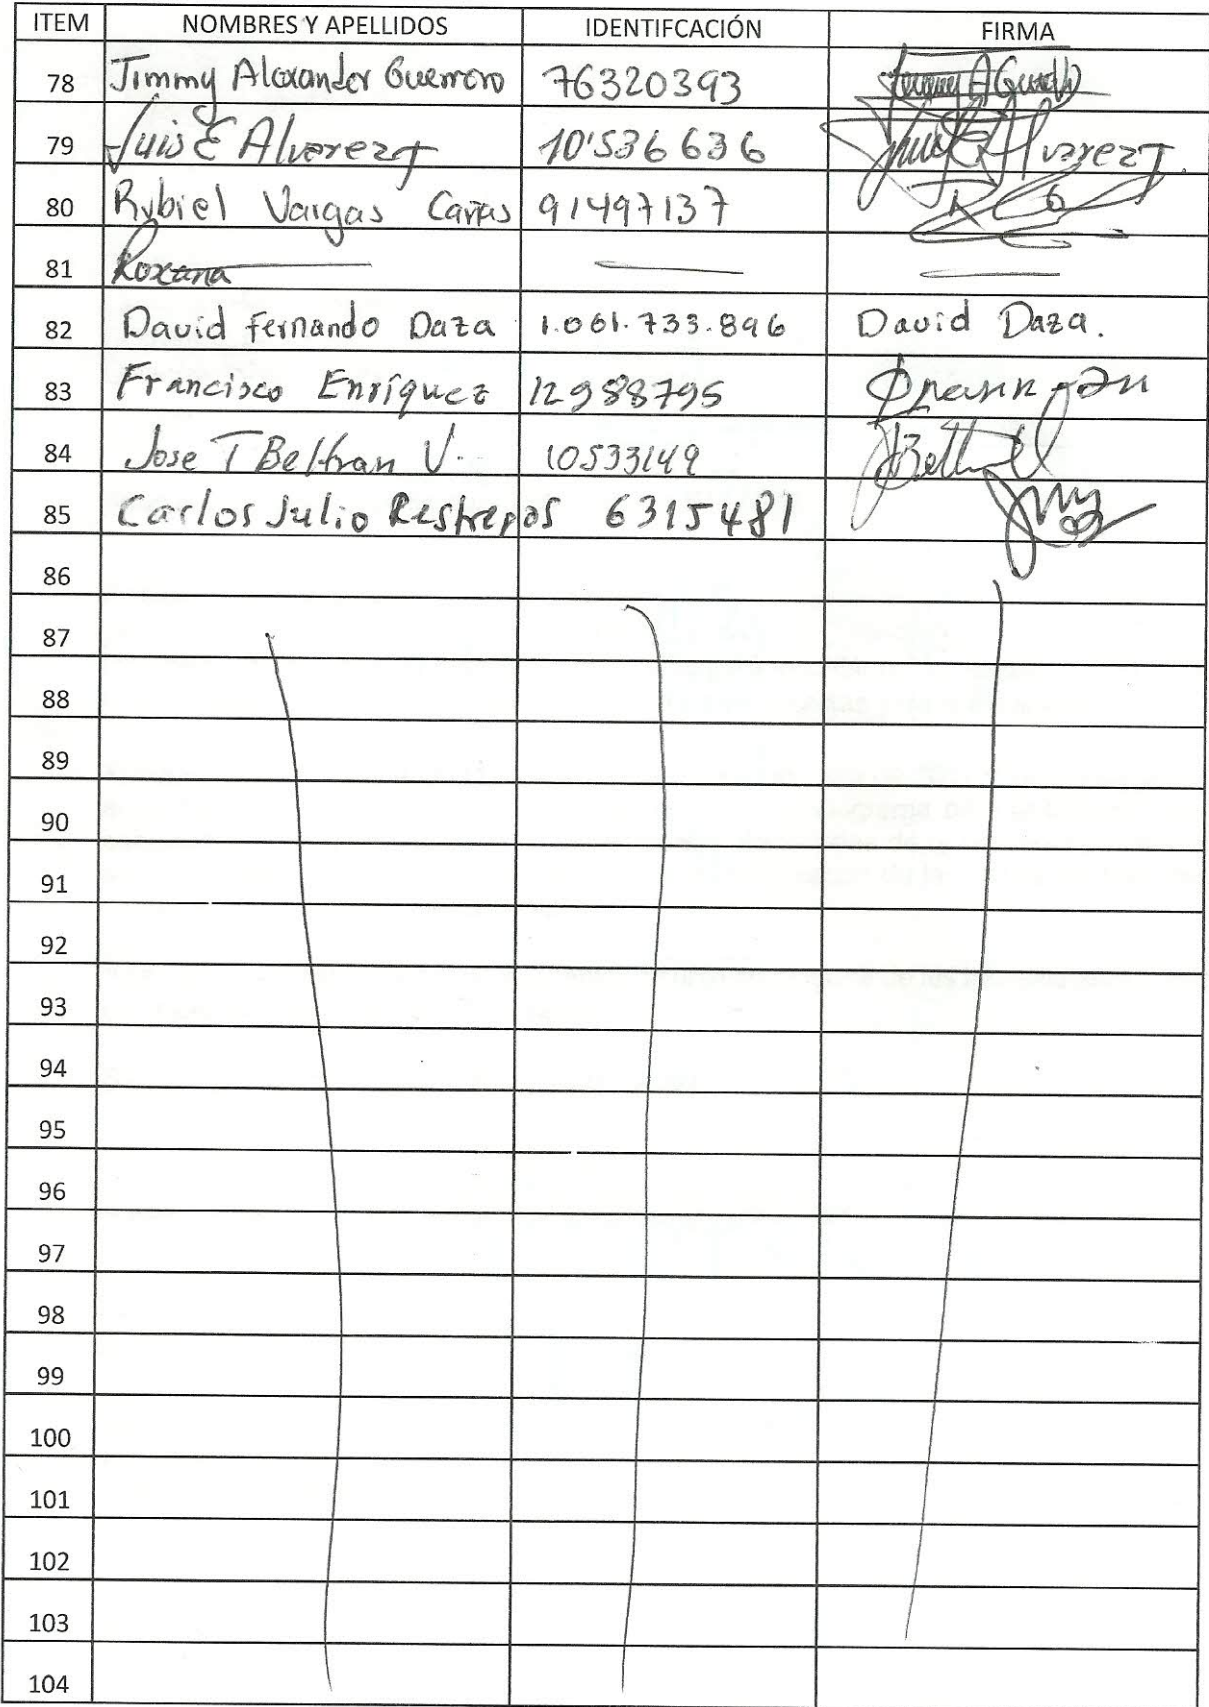 ITEM NOMBRES Y APELLIDOS IDENTIFCACIÓN FIRMA
78 Jimmy Alexander Guerrero 76320393
79 Luis E Alvarez J 10'536636 Luis E Alvarez J.
80 Rubiel Vargas Cañas 91497137
81 Roxana
82 David Fernando Daza 1.061.733.896 David Daza.
83 Francisco Enríquez 12988795
84 Jose T Beltran V. 10533149
85 Carlos Julio Restrepo S 6315481
86
87
88
89
90
91
92
93
94
95
96
97
98
99
100
101
102
103
104